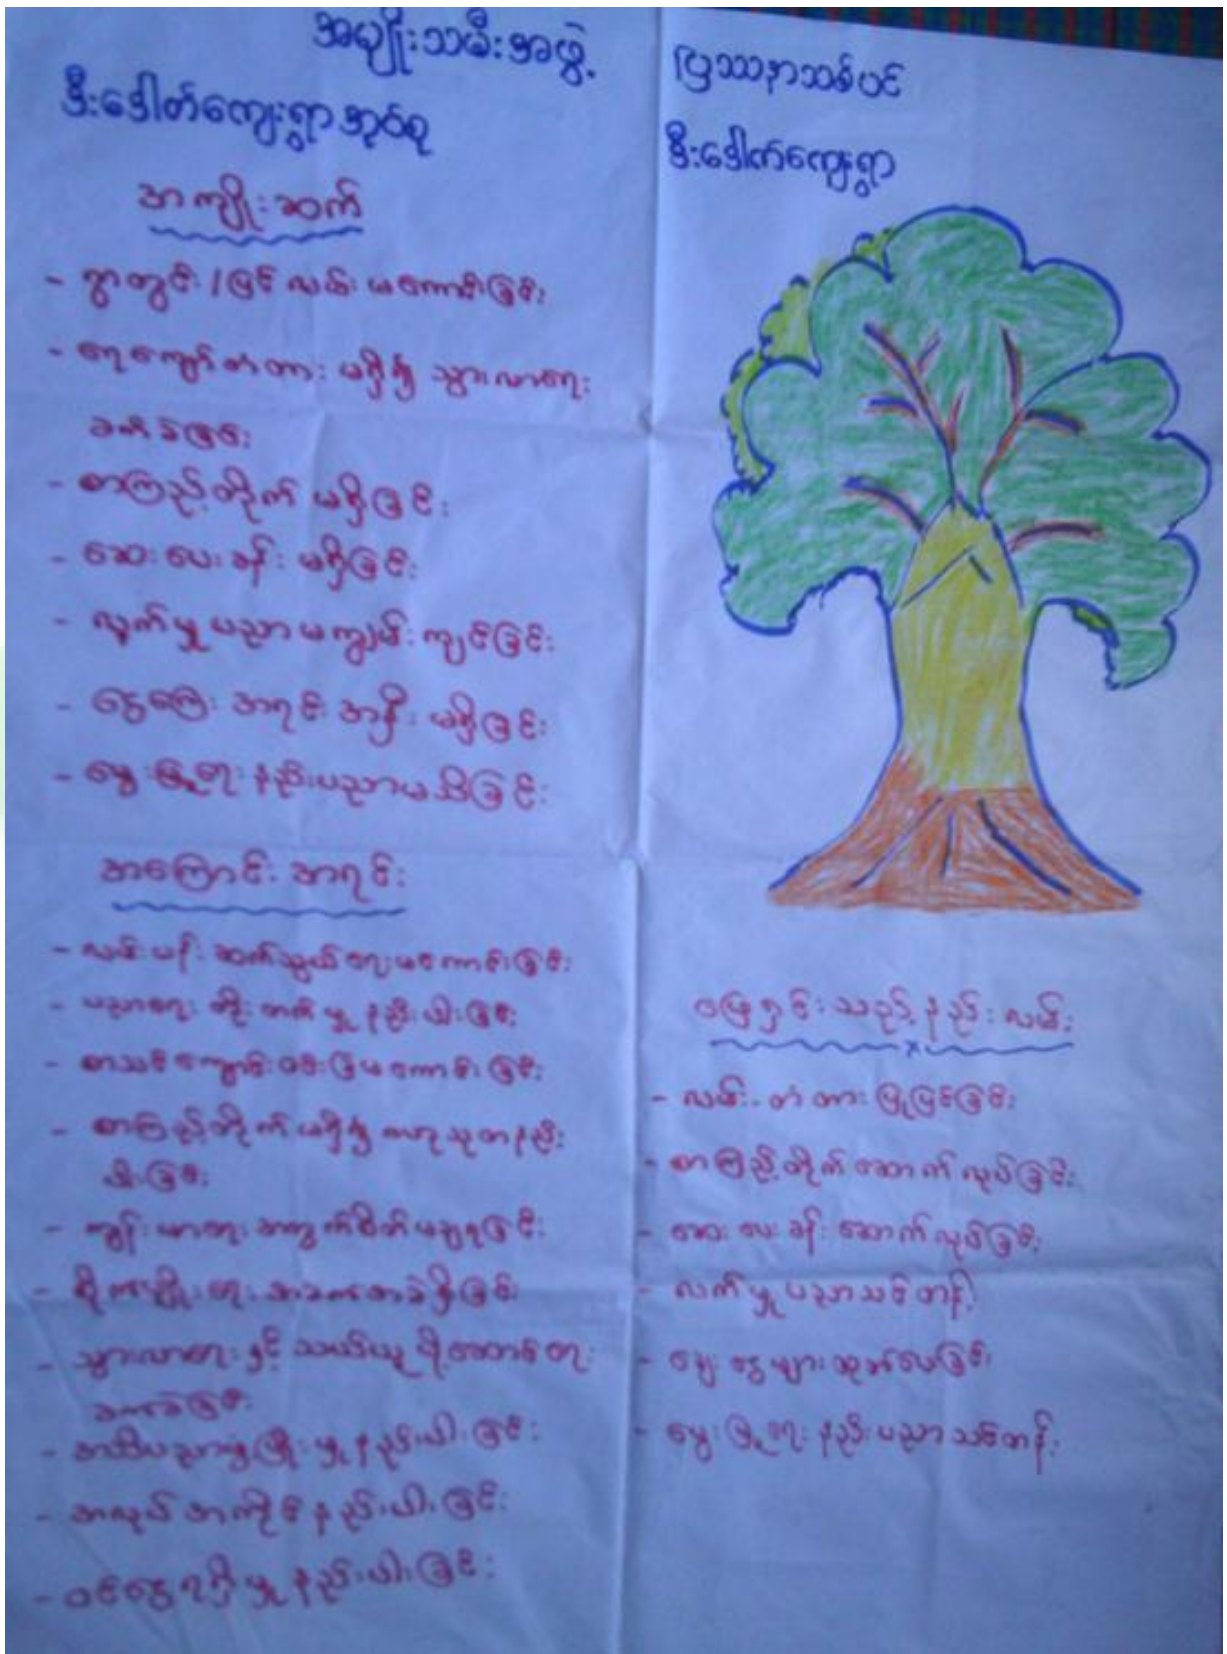 အမျိုးသမီးအဖွဲ့
ဒီးဒေါတ်ကျေးရွာအုပ်စု
အကျိုးဆက်
- ရွာတွင်း/ပြင် လမ်းမကောင်းခြင်း
- ရေကျော်တံတား မရှိ၍ သွားလာရေး
ခက်ခဲခြင်း
- စာကြည့်တိုက် မရှိခြင်း
- ဆေးပေးခန်း မရှိခြင်း
- လွက်မှုပညာမကျွမ်းကျင်ခြင်း
- ငွေကြေး အရင်းအနှီး မရှိခြင်း
- မွေးမြူရေးနည်းပညာမသိခြင်း
အကြောင်းအရင်း
- လမ်းပန်းဆက်သွယ်ရေးမကောင်းခြင်း
- ပညာရေး တိုးတက်မှုနည်းပါးခြင်း
- စာသင်ကျောင်းဝင်းခြံမကောင်းခြင်း
- စာကြည့်တိုက်မရှိ၍ ဗဟုသုတနည်း
ပါးခြင်း
- ကျန်းမာရေးအတွက်စိတ်မချရခြင်း
- စိုက်ပျိုးရေးအခက်အခဲရှိခြင်း
- သွားလာရေးနှင့် သယ်ယူပို့ဆောင်ရေး
ခက်ခဲခြင်း
- အသိပညာဖွံ့ဖြိုးမှုနည်းပါးခြင်း
- အလုပ်အကိုင်နည်းပါးခြင်း
- ဝင်ငွေရရှိမှုနည်းပါးခြင်း
ပြဿနာသစ်ပင်
ဒီးဒေါက်ကျေးရွာ
ဖြေရှင်းသည့်နည်းလမ်း
- လမ်း၊ တံတား ပြုပြင်ခြင်း
- စာကြည့်တိုက်ဆောက်လုပ်ခြင်း
- ဆေးပေးခန်းဆောက်လုပ်ခြင်း
- လက်မှုပညာသင်တန်း
- ချေးငွေများထုတ်ပေးခြင်း
- မွေးမြူရေးနည်းပညာသင်တန်း